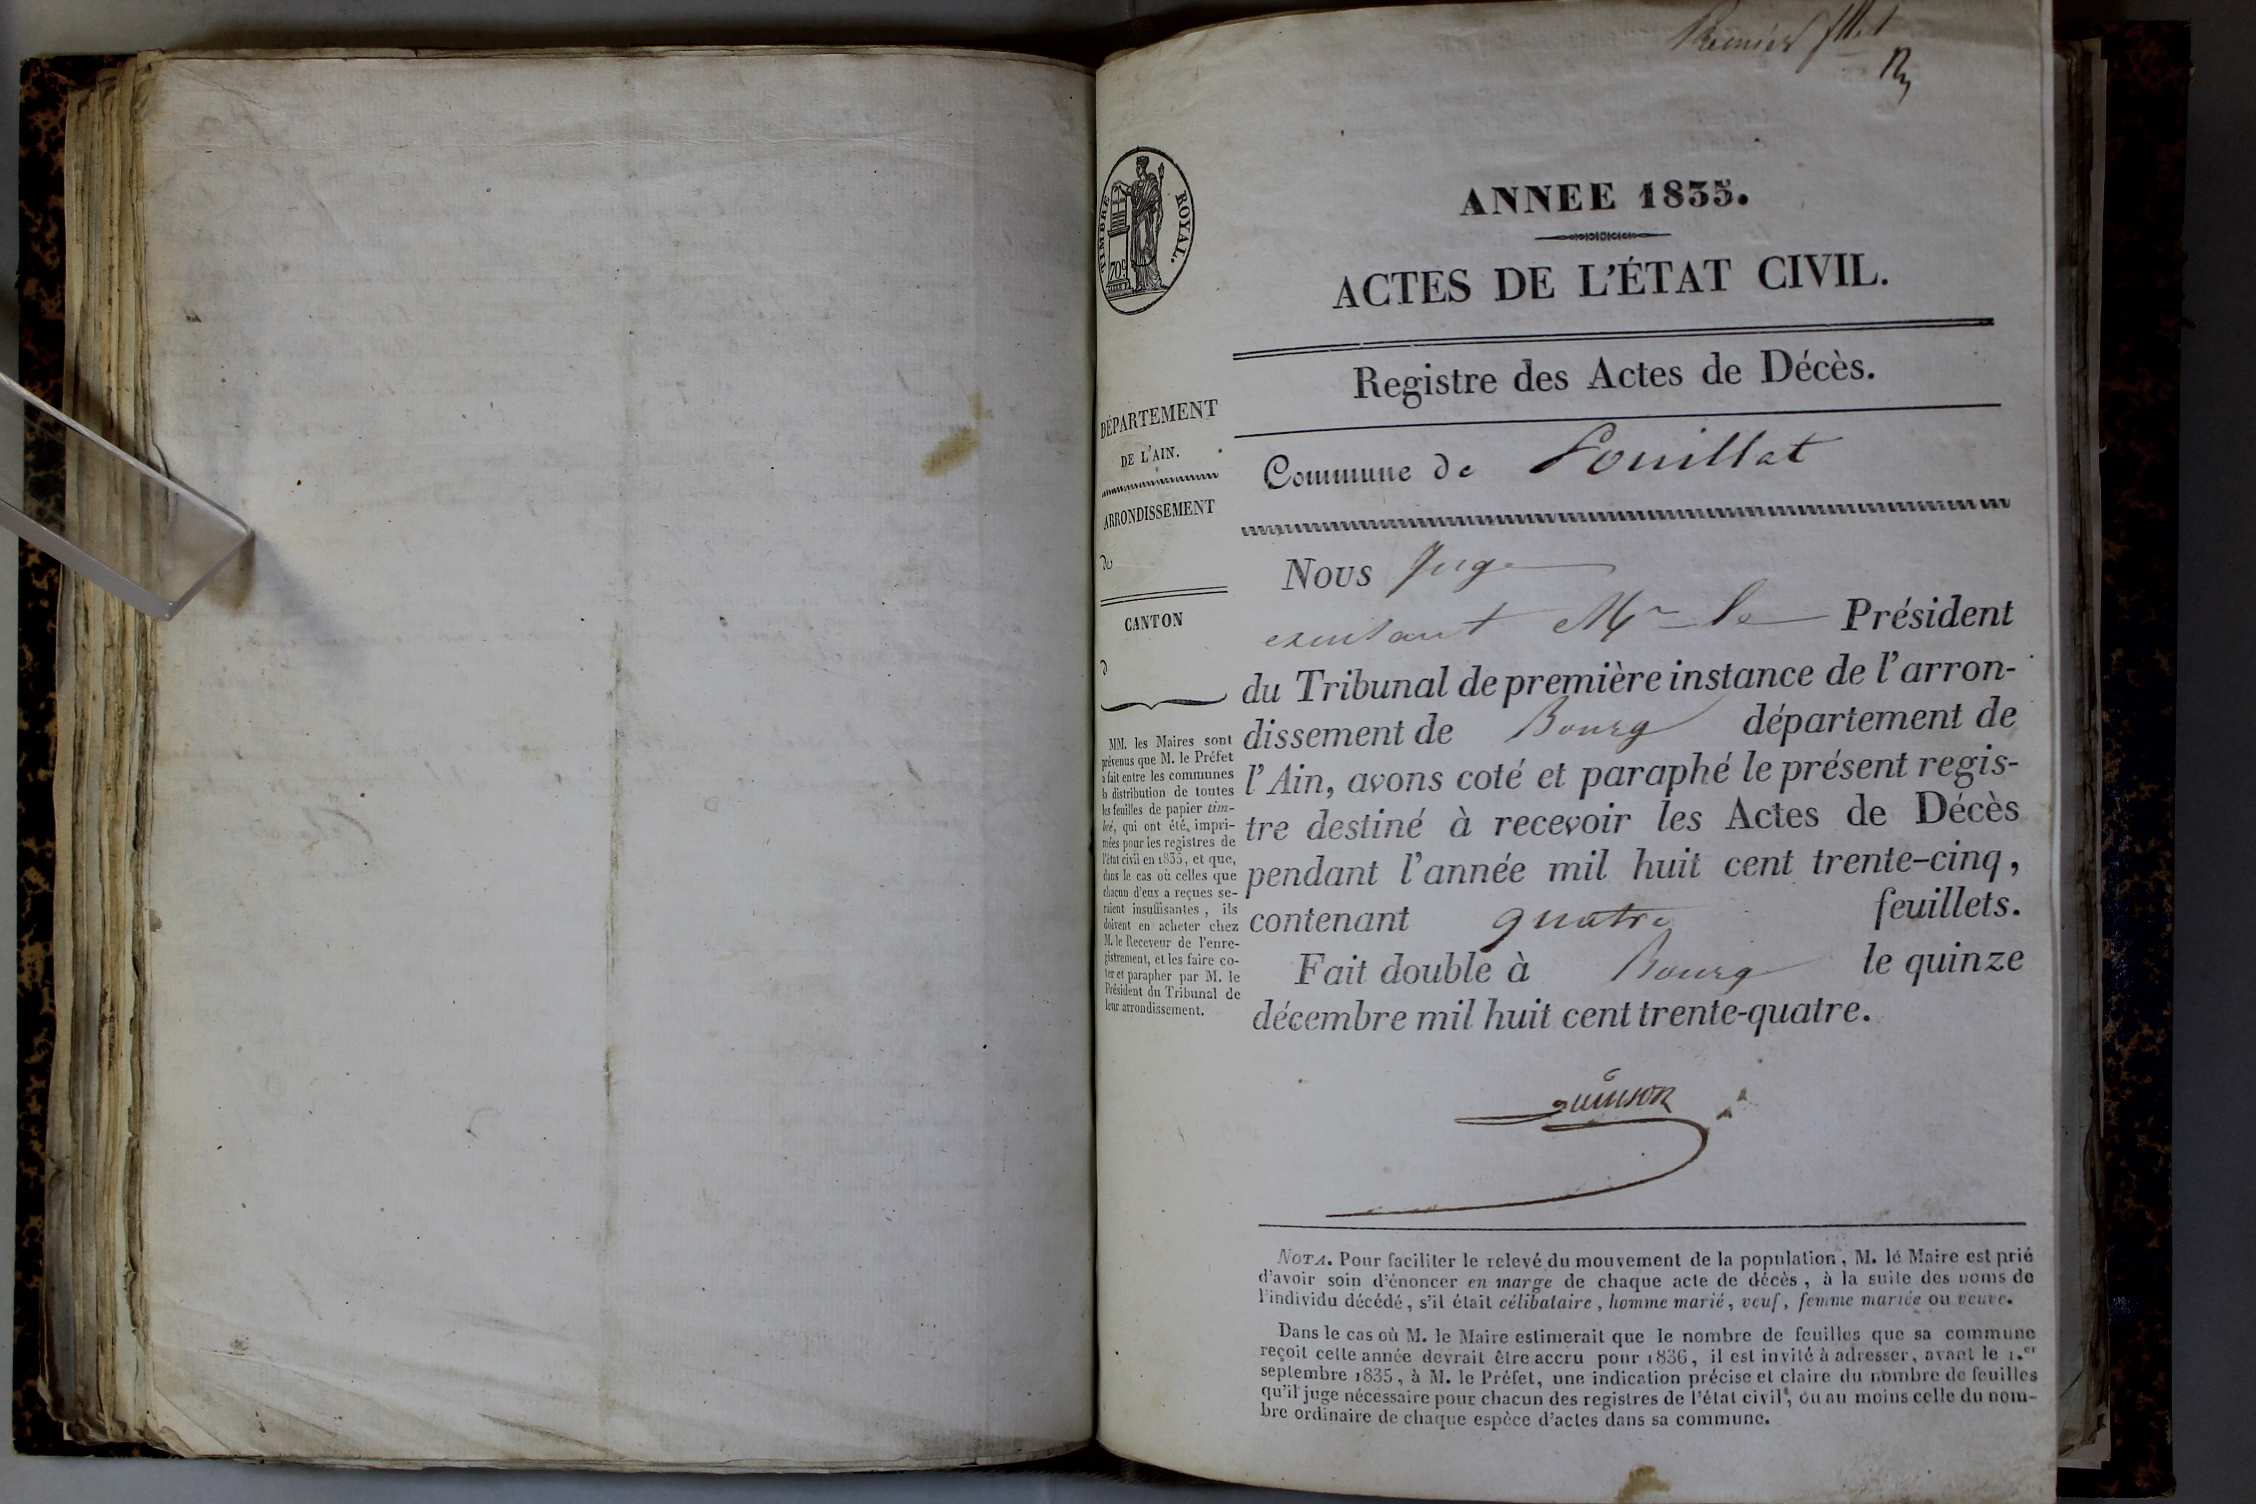 Premier fllet
TIMBRE ROYAL.
70c
ANNEE 1835.
ACTES DE L'ÉTAT CIVIL.
Registre des Actes de Décès.
Commune de Pouillat
DÉPARTEMENT
DE L'AIN.
ARRONDISSEMENT
de
CANTON
d
MM. les Maires sont
prévenus que M. le Préfet
a fait entre les communes
la distribution de toutes
les feuilles de papier tim-
bré, qui ont été impri-
mées pour les registres de
l'état civil en 1835, et que,
dans le cas où celles que
chacun d'eux a reçues se-
raient insuffisantes, ils
doivent en acheter chez
M. le Receveur de l'enre-
gistrement, et les faire co-
ter et parapher par M. le
Président du Tribunal de
leur arrondissement.
Nous Juge
exerçant Mr le Président
du Tribunal de première instance de l'arron-
dissement de Bourg département de
l'Ain, avons coté et paraphé le présent regis-
tre destiné à recevoir les Actes de Décès
pendant l'année mil huit cent trente-cinq,
contenant quatre feuillets.
Fait double à Bourg le quinze
décembre mil huit cent trente-quatre.
Quinson
NOTA. Pour faciliter le relevé du mouvement de la population, M. lé Maire est prié
d'avoir soin d'énoncer en marge de chaque acte de décès, à la suite des noms de
l'individu décédé, s'il était célibataire, homme marié, veuf, femme mariée ou veuve.
Dans le cas où M. le Maire estimerait que le nombre de feuilles que sa commune
reçoit cette année devrait être accru pour 1836, il est invité à adresser, avant le 1.er
septembre 1835, à M. le Préfet, une indication précise et claire du nombre de feuilles
qu'il juge nécessaire pour chacun des registres de l'état civil, ou au moins celle du nom-
bre ordinaire de chaque espèce d'actes dans sa commune.